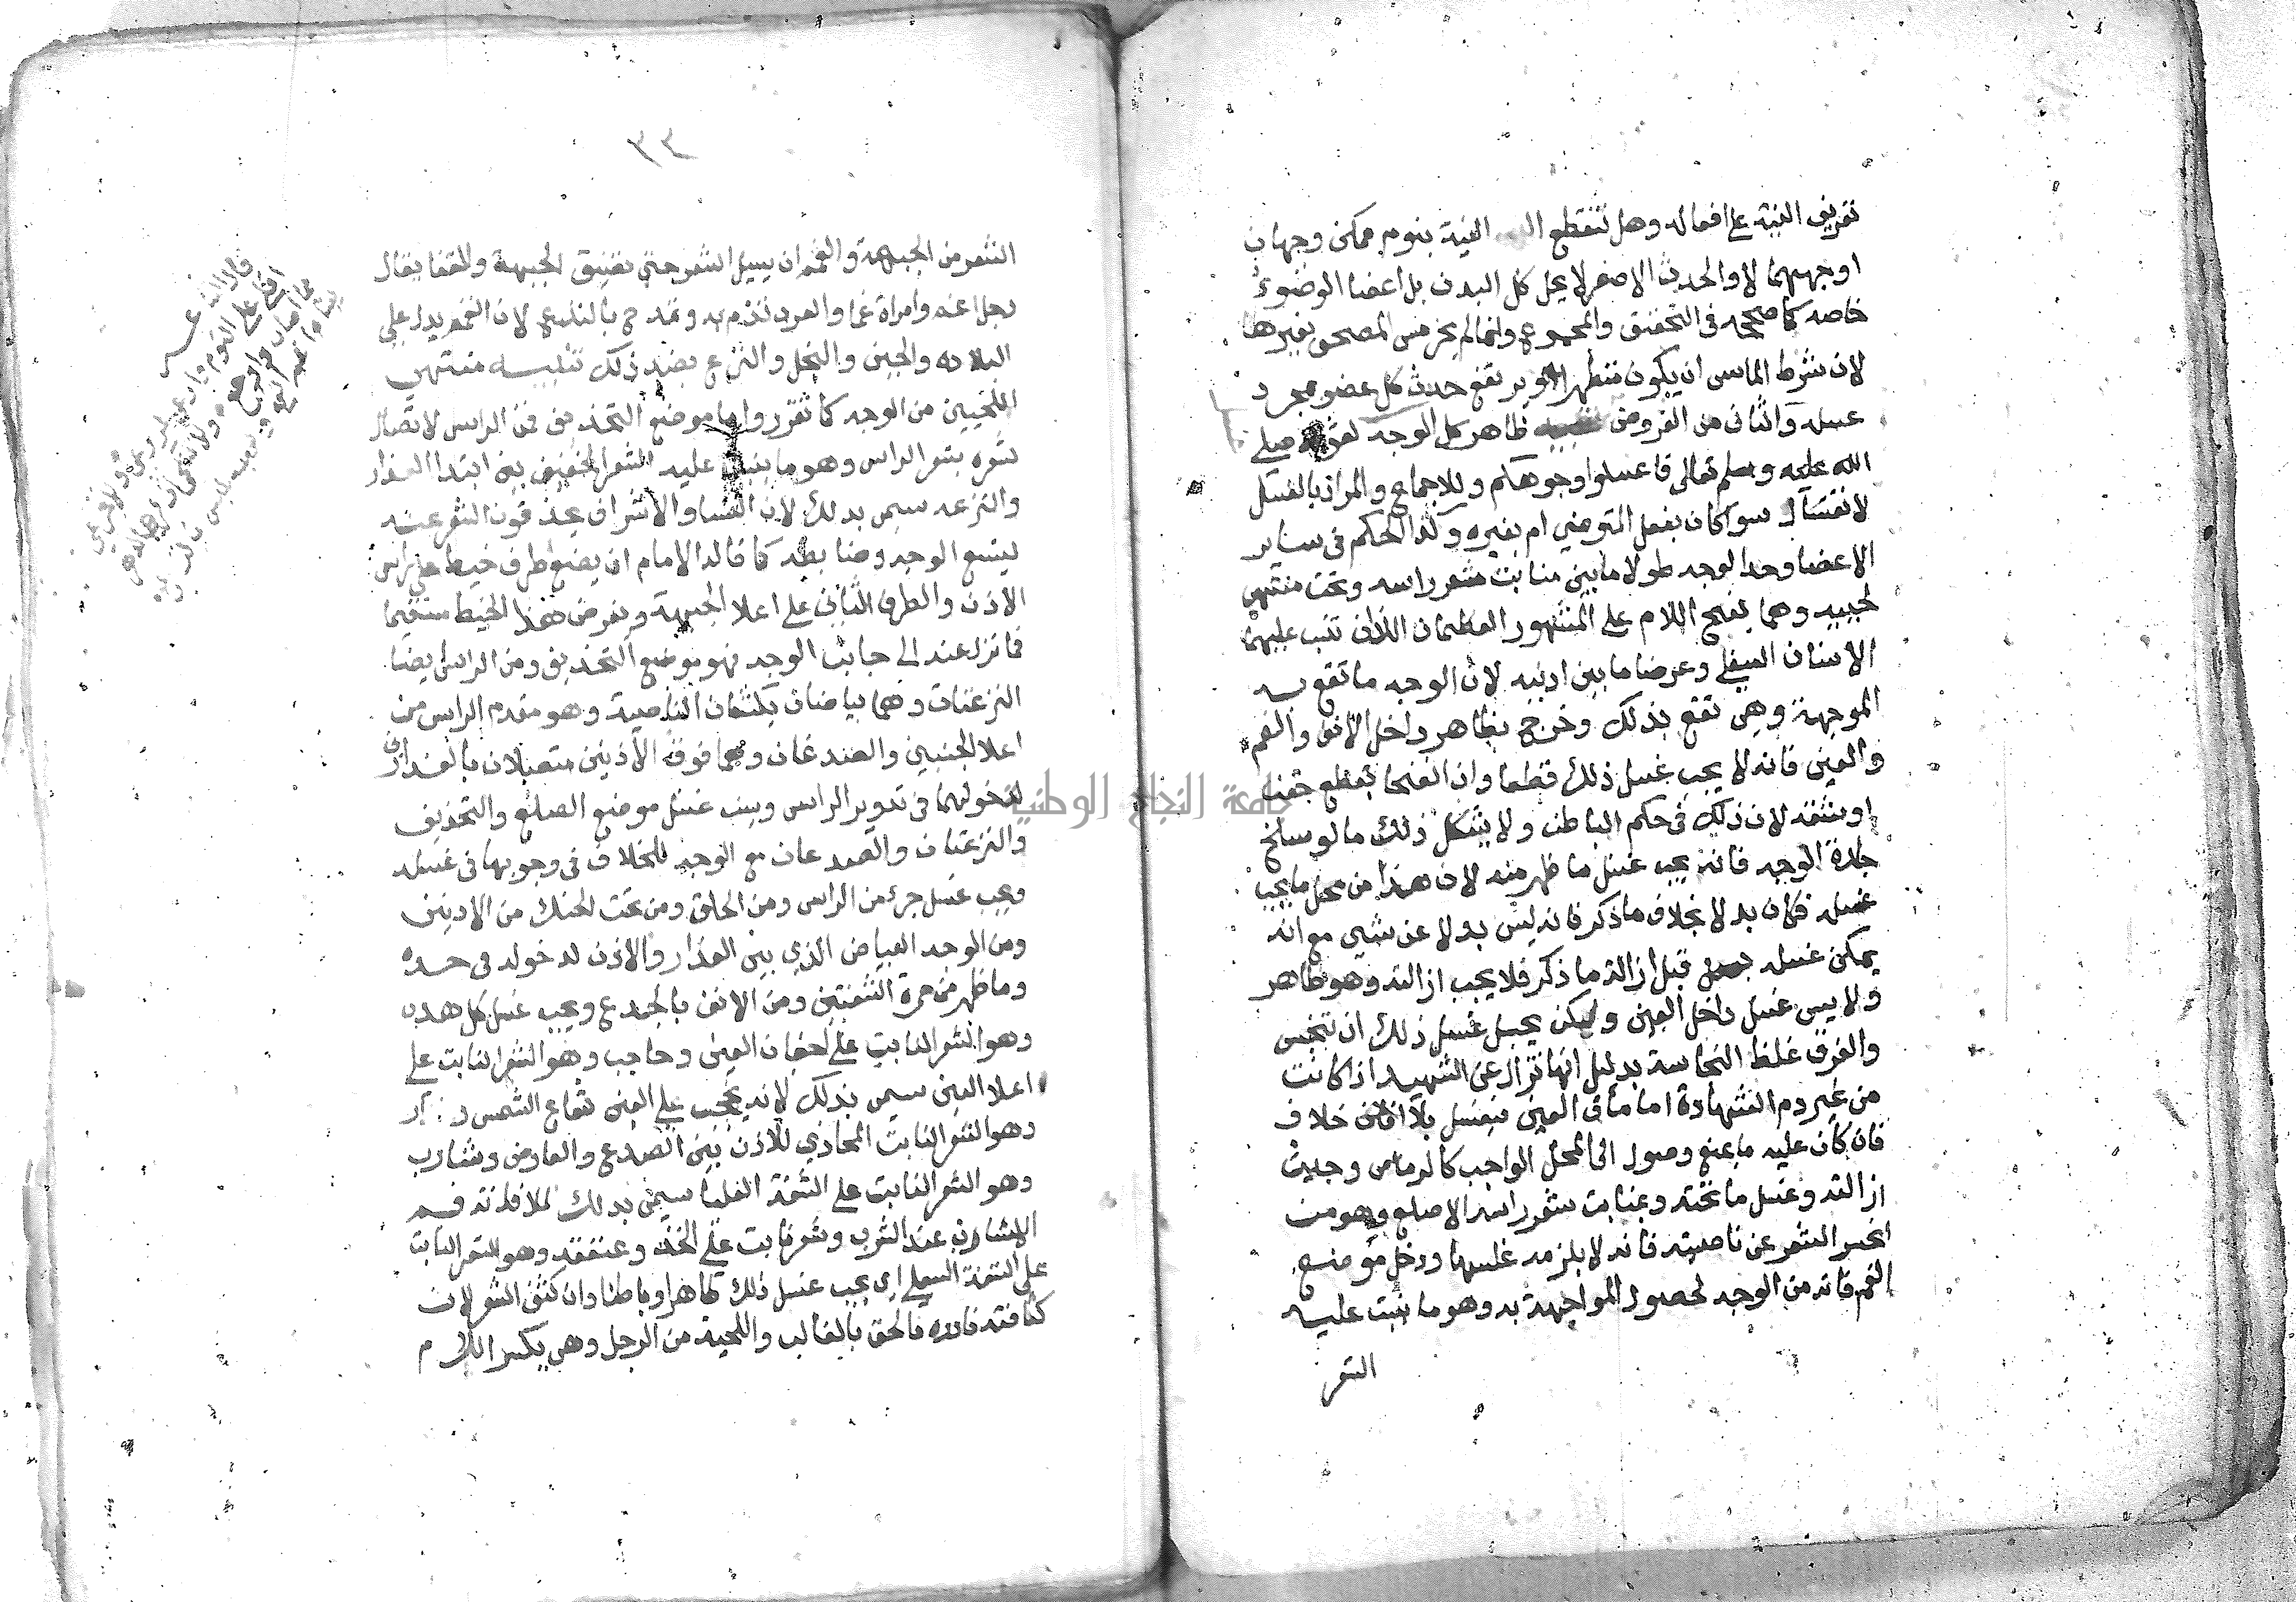 تفريق النية على افعاله وهل تنقطع النية بنوم ممكن وجهان
اوجههما لا والحدث الاصغر لا يحل كل البدن بل اعضا الوضوء
خاصه كما صححه في التحقيق والمجموع وانما لم يجز مس المصحف بغيرها
لان شرط الماس ان يكون متطهرا ويرتفع حدث كل عضو بمجرد
غسله والثاني من الفروض ظاهر كل الوجه لقوله صلى
الله عليه وسلم تعالى فاغسلوا وجوهكم وللاجماع والمراد بالغسل
الانغسال سوآ كان بفعل المتوضي ام بغيره وكذا الحكم في ساير
الاعضا وحد الوجه طولا ما بين منابت شعر راسه وتحت منتهى
لحييه وهما بفتح اللام على المشهور العظمان اللذان تنبت عليهما
الاسنان السفلى وعرضا ما بين اذنيه لان الوجه ما تقع به
المواجهة وهي تقع بذلك وخرج بظاهر داخل الانف والفم
والعين فانه لا يجب غسل ذلك قطعا وان انفتحا بقطع جفن
او شفة لان ذلك في حكم الباطن ولا يشكل ذلك ما لو سلخ
جلدة الوجه فانه يجب غسل ما ظهر منه لان هذا من محل ما يجب
غسله فكان بدلا بخلاف ما ذكر فانه ليس بدلا عن شيى مع انه
يمكن غسله قبل ازالة ما ذكر فلا يجب ازالته وهو ظاهر
ولا يسن غسل داخل العين ولكن يجب غسل ذلك ان تنجس
والفرق غلظ النجاسة بدليل انها تزال عن الشهيد اذا كانت
من غير دم الشهادة اما ماق العين فيغسل بلا خلاف
فان كان عليه ما يمنع وصول الى المحل الواجب كالرماص وجبت
ازالته وغسل ما تحته وبمنابت شعر راسه الاصلع وهو من
انحسر الشعر عن ناصيته فانه لا يلزمه غسلها ودخل موضع
الغمم فانه من الوجه لحصول المواجهة به وهو ما نبت عليه
الشعر
٣٤
الشعر من الجبهة والغمم ان يسيل الشعر حتى تضيق الجبهة والقفا يقال
رجل اغم وامراة غما والعرب تذم به وتمدح بالنزع لان الغمم يدل على
البلاده والجبن والبخل والنزع بضد ذلك تنبيه منتهى
اللحيين من الوجه كما تقرر واما موضع التحذيف فمن الراس لاتصال
شعره بشعر الراس وهو ما ينبت عليه الشعر الخفيف بين ابتدا العذار
والنزعه سمي بذلك لان النسا والاشراف يحذفون الشعر عنه
ليتسع الوجه وضابطه كما قاله الامام ان يضع طرف خيط على راس
الاذن والطرف الثاني على اعلا الجبهة ويفرض هذا الخيط مستقيما
فما نزل عنه الى جانب الوجه فهو موضع التحذيف ومن الراس ايضا
النزعتان وهما بياضان يكتنفان الناصية وهو مقدم الراس من
اعلا الجبين والصدغان وهما فوق الاذنين متصلان بالعذارين
لدخولهما في تدوير الراس ويسن غسل موضع الصلع والتحذيف
والنزعتان والصدغان مع الوجه للخلاف في وجوبها في غسله
ويجب غسل جزء من الراس ومن الحلق ومن تحت الحنك من الاذنين
ومن الوجه البياض الذي بين العذار والاذن لدخوله في حده
وما ظهر من حمرة الشفتين ومن الانف بالجدع ويجب غسل كل هدب
وهو الشعر النابت على اجفان العين وحاجب وهو الشعر النابت على
اعلا العين سمي بذلك لانه يحجب على العين شعاع الشمس
وهو الشعر النابت المحاذي للاذن بين الصدغ والعارض وشارب
وهو الشعر النابت على الشفة العليا سمي بذلك لملاقاته فم
الانسان عند الشرب وشعر نابت على الخد وعنفقه وهو الشعر النابت
على الشفة السفلى اى يجب غسل ذلك ظاهرا وباطنا وان كثف الشعر لان
كثافته نادره فالحق بالغالب واللحية من الرجل وهي بكسر اللام
جامعة النجاح الوطنية